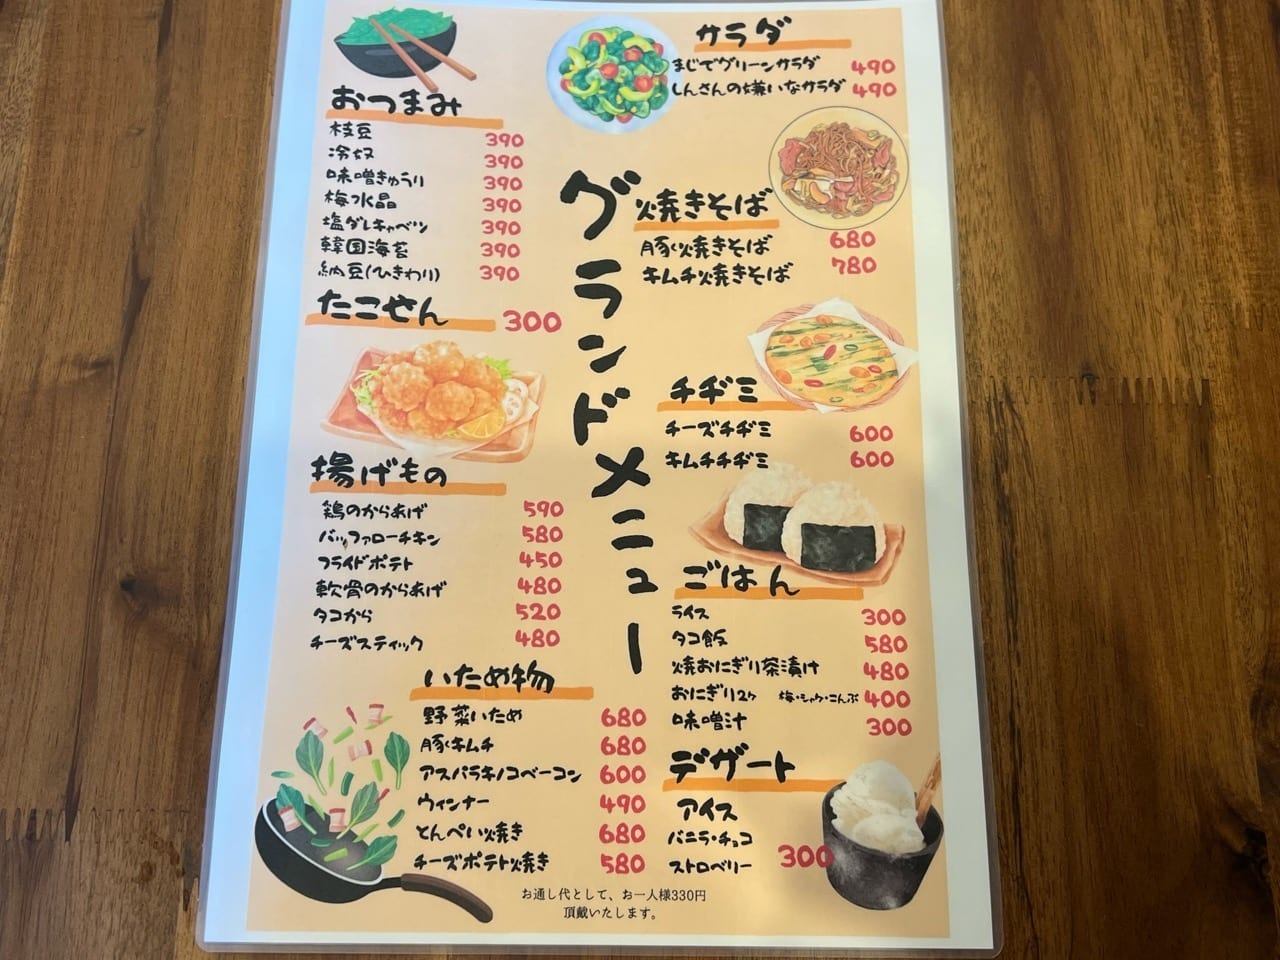 グランドメニュー
おつまみ
枝豆 390
冷奴 390
味噌きゅうり 390
梅水晶 390
塩ダレキャベツ 390
韓国海苔 390
納豆(ひきわり) 390
たこせん 300
揚げもの
鶏のからあげ 590
バッファローチキン 580
フライドポテト 450
軟骨のからあげ 480
タコから 520
チーズスティック 480
いため物
野菜いため 680
豚キムチ 680
アスパラキノコベーコン 600
ウィンナー 490
とんぺい焼き 680
チーズポテト焼き 580
サラダ
まじでグリーンサラダ 490
しんさんの嫌いなサラダ 490
焼きそば
豚焼きそば 680
キムチ焼きそば 780
チヂミ
チーズチヂミ 600
キムチチヂミ 600
ごはん
ライス 300
タコ飯 580
焼おにぎり茶漬け 480
おにぎり2ヶ 梅・シャケ・こんぶ 400
味噌汁 300
デザート
アイス
バニラ・チョコ
ストロベリー 300
お通し代として、お一人様330円
頂戴いたします。